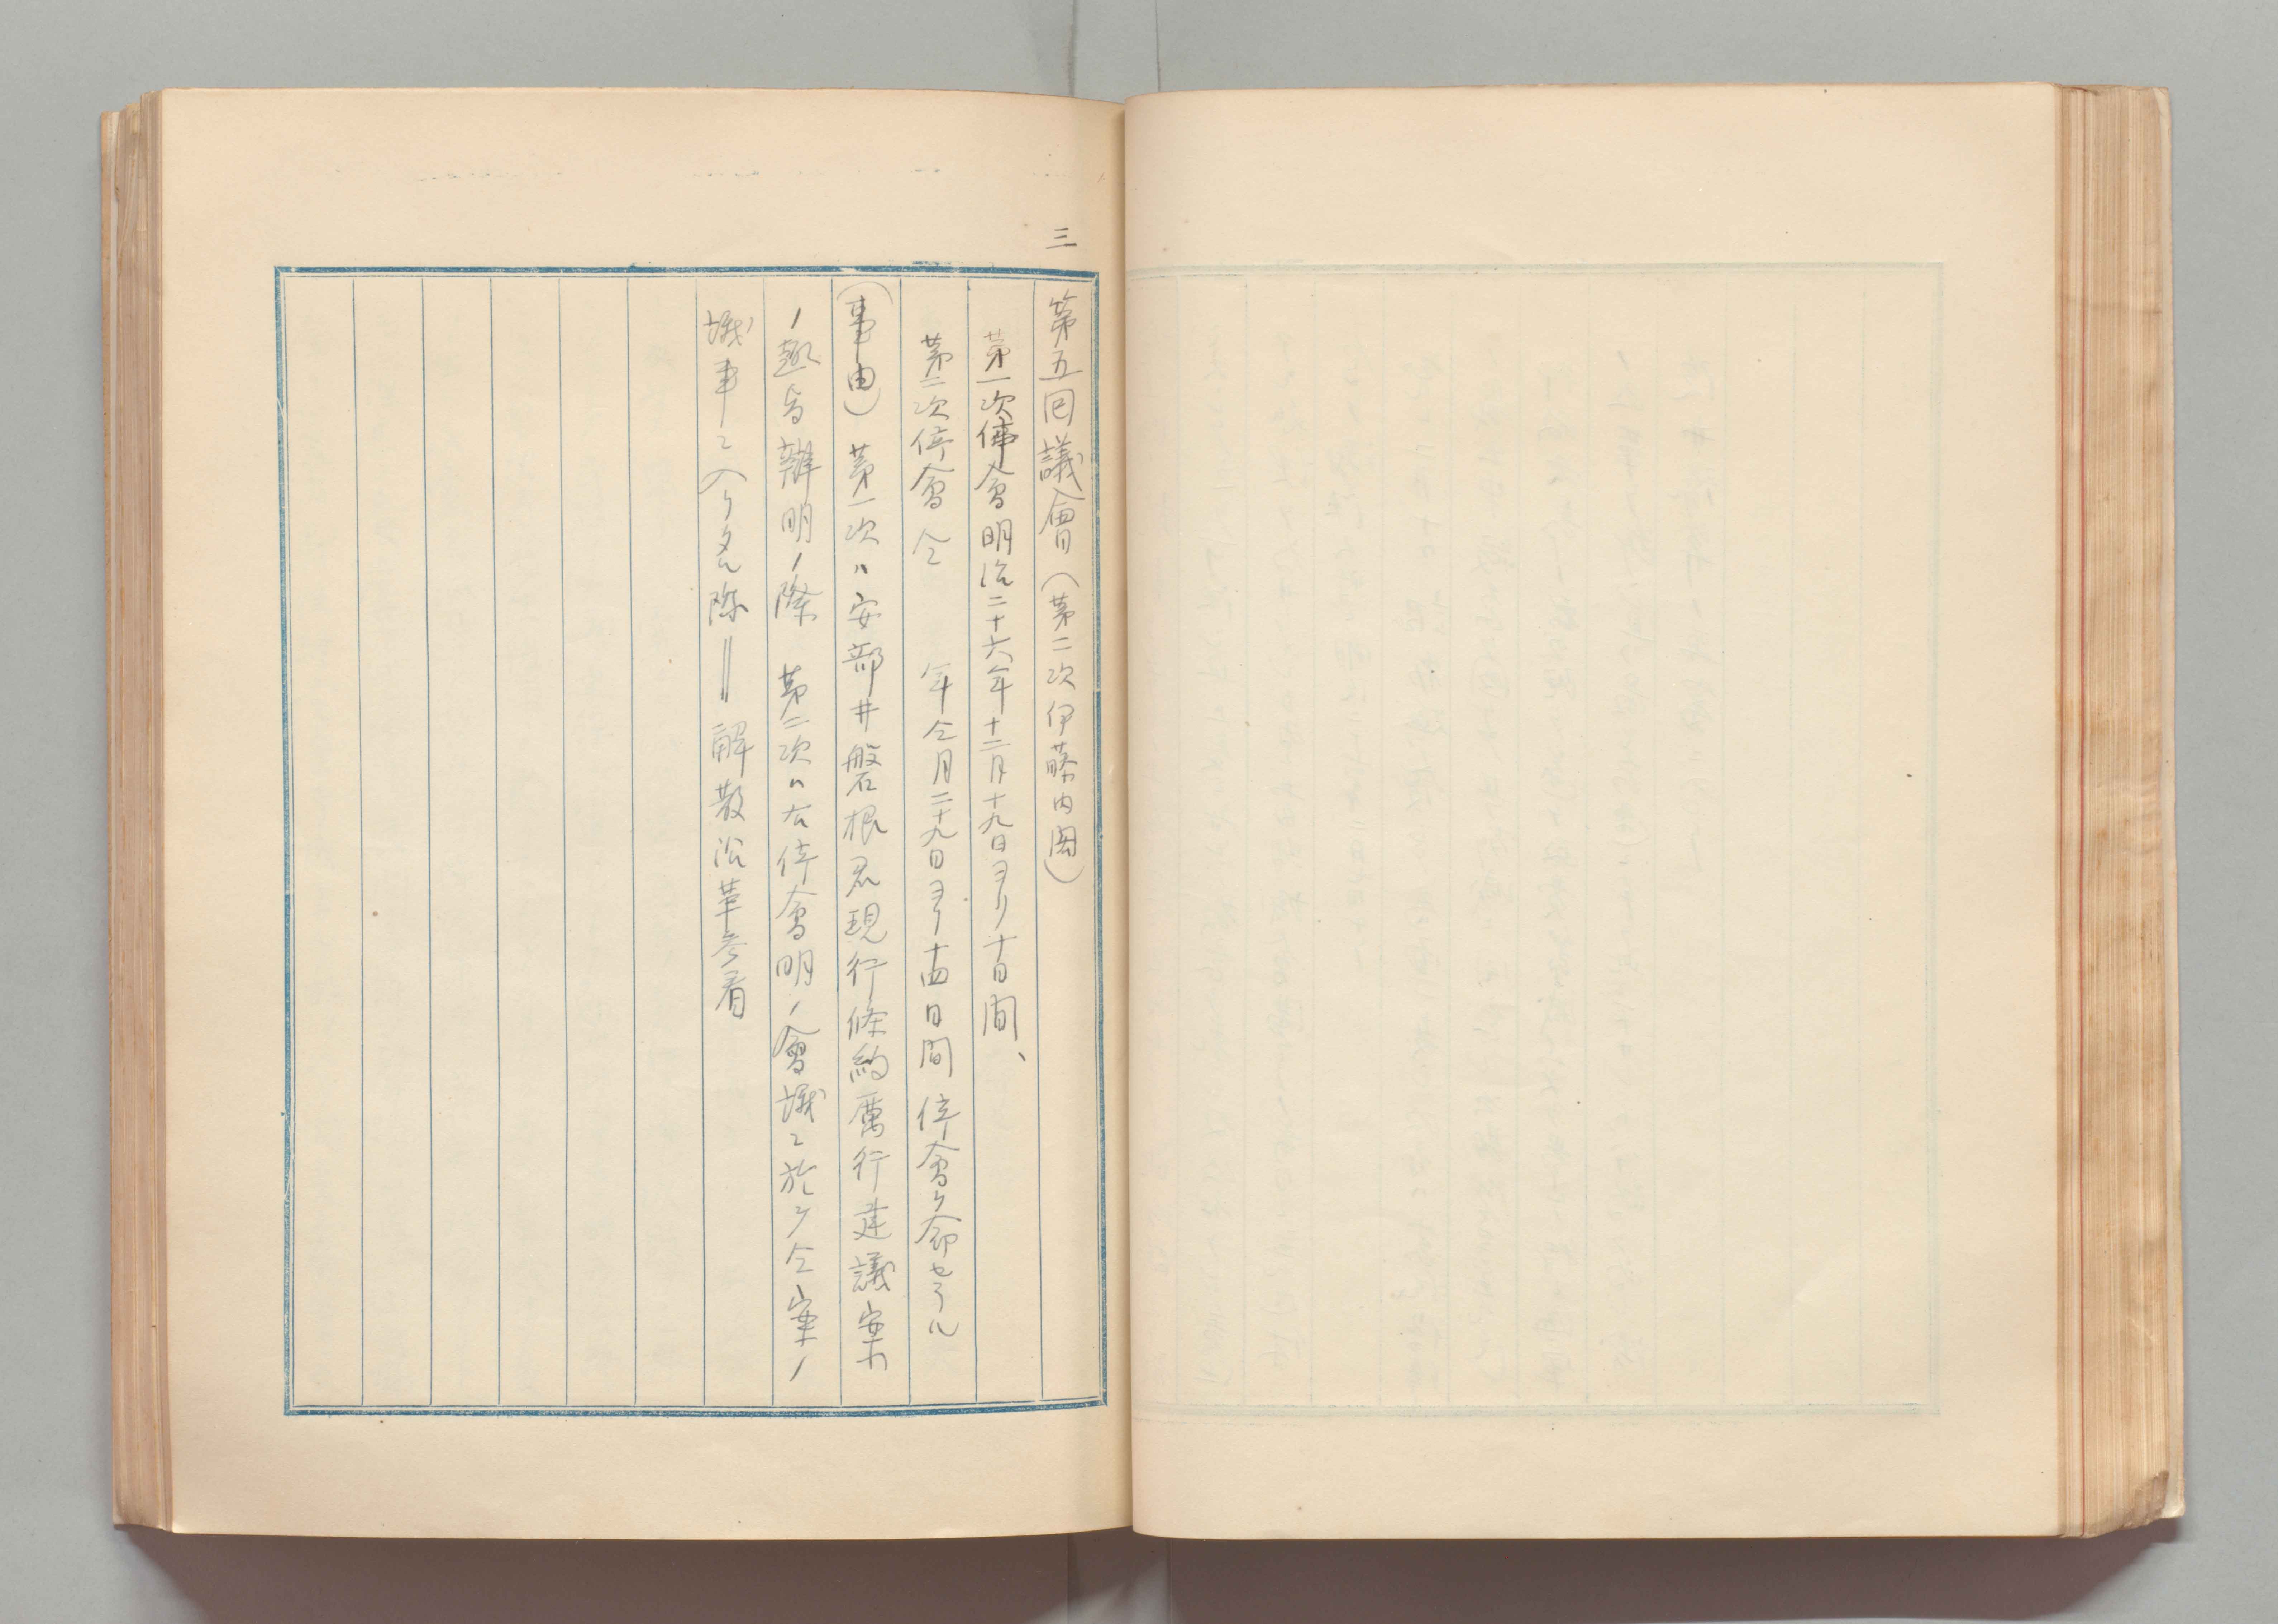 三
第五回議會（第二次伊藤内閣）
第一次停會明治二十六年十二月十九日ヨリ十日間、
第二次停會仝　　年仝月二十九日ヨリ十四日間停會ヲ命セラル
（事由）第一次ハ安部井磐根君現行條約厲行建議案
ノ趣旨辯明ノ際　第二次ハ右停會明ノ會議ニ於テ仝案ノ
議事ニ入リタル際＝解散沿革参看